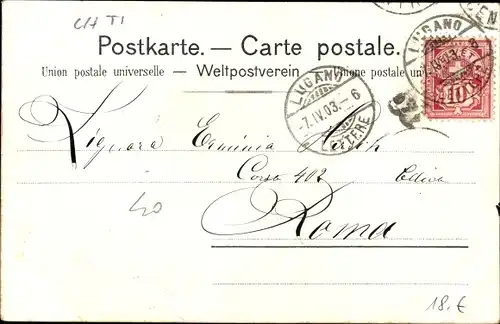 CH TI
Postkarte. — Carte postale.
Union postale universelle — Weltpostverein — Unione postale uni
LUGANO
LUGANO
-7.IV.03.-6
LETTERE
10
Signora Erminia
Corso 402
40
Roma
18.€